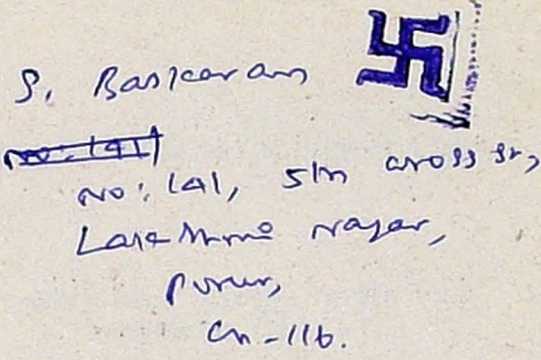 S. Baskaran
No: 1A1,
No: 1A1, 5th cross st,
Lakshmi Nagar,
Porur,
Ch-116.